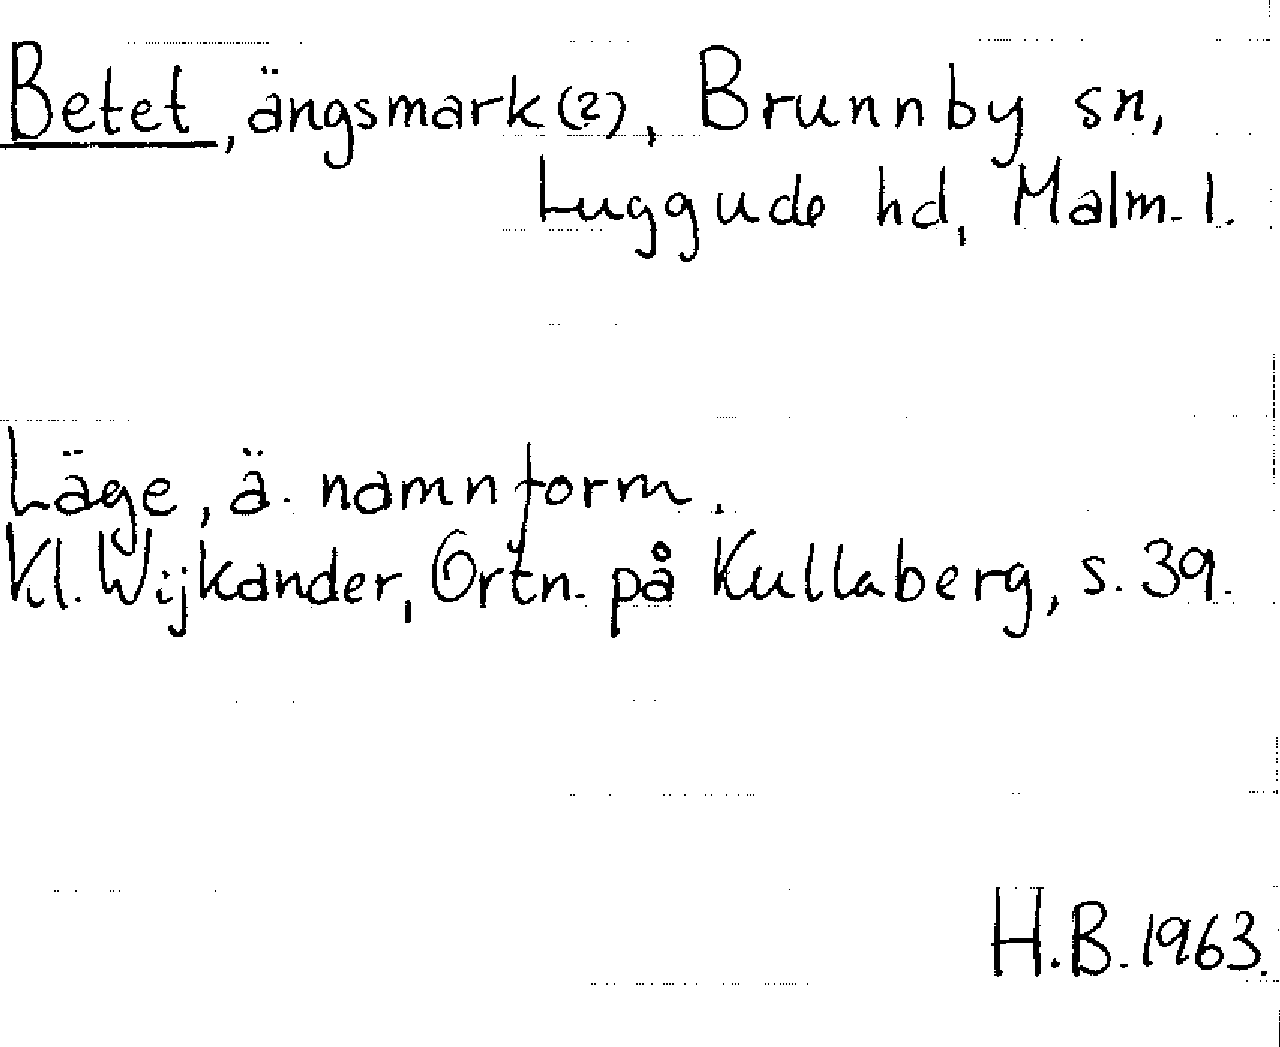 Betet, ängsmark(2), Brunnby sn,
Luggude hd, Malm. l.
Läge, ä. namnform.
Kl. Wijkander, Ortn. på Kullaberg, s. 39.
H.B. 1963.